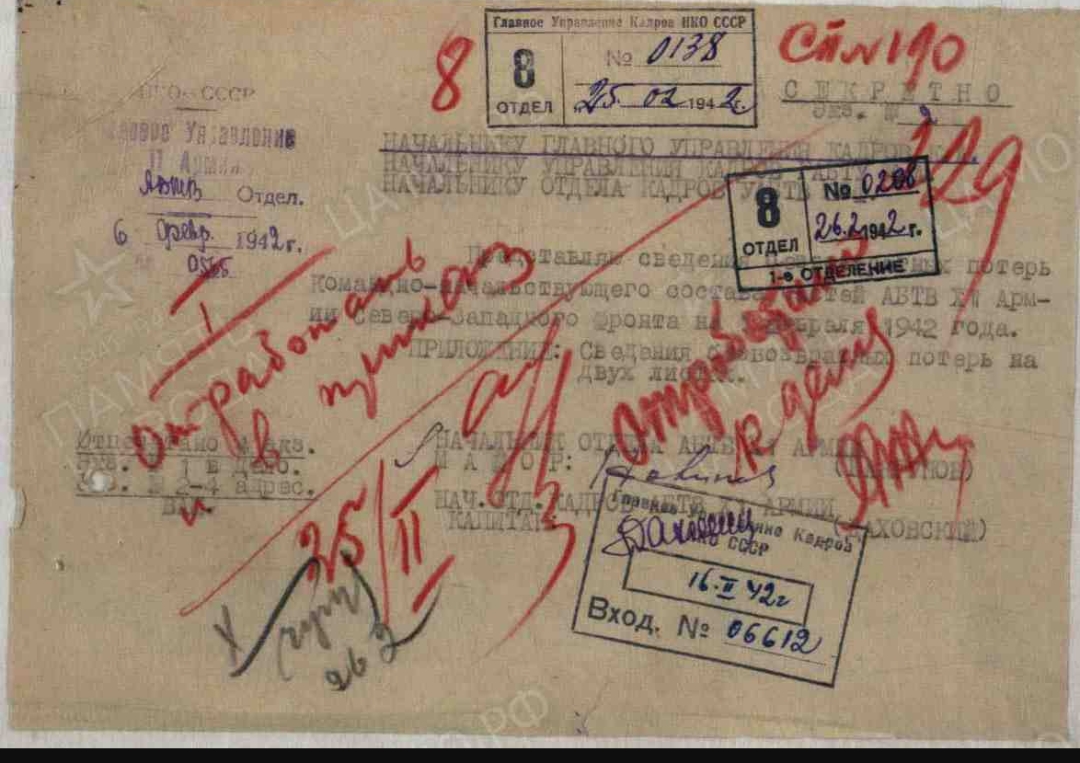 Главное Управление Кадров НКО СССР
8
ОТДЕЛ
№ 0138
25. 02 1942г.
8
Сп №190
СЕКРЕТНО
Экз. № 2
НКО СССР
Управление
11 Армии
АБТВ Отдел.
6 февр. 1942г.
0565
НАЧАЛЬНИКУ ГЛАВНОГО УПРАВЛЕНИЯ КАДРОВ
НАЧАЛЬНИКУ УПРАВЛЕНИЯ КАДРОВ АБТУ
НАЧАЛЬНИКУ ОТДЕЛА КАДРОВ
129
8
ОТДЕЛ
№ 0208
26.2 1942г.
1-е ОТДЕЛЕНИЕ
Представляю сведения потерь
Командно-начальствующего состава частей АБТВ XI Арм-
ии Северо-Западного Фронта на февраля 1942 года.
ПРИЛОЖЕНИЕ: Сведения безвозвратных потерь на
двух листах.
I
отработать
в приказ
и
25/II
отработан
к делу
Отпечатано 4 экз.
Экз. № 1 в дело.
Экз. № 2-4 адрес.
НАЧАЛЬНИК ОТДЕЛА АБТВ XI АРМИИ
МАЙОР:
НАЧ.ОТД.КАДРОВ АБТВ XI АРМИИ
КАПИТАН (ДАХОВСКИЙ)
Главное Управление Кадров
НКО СССР
16-II 42г
Вход. № 06612
26 2
ПАМЯТЬ
ЦАМО